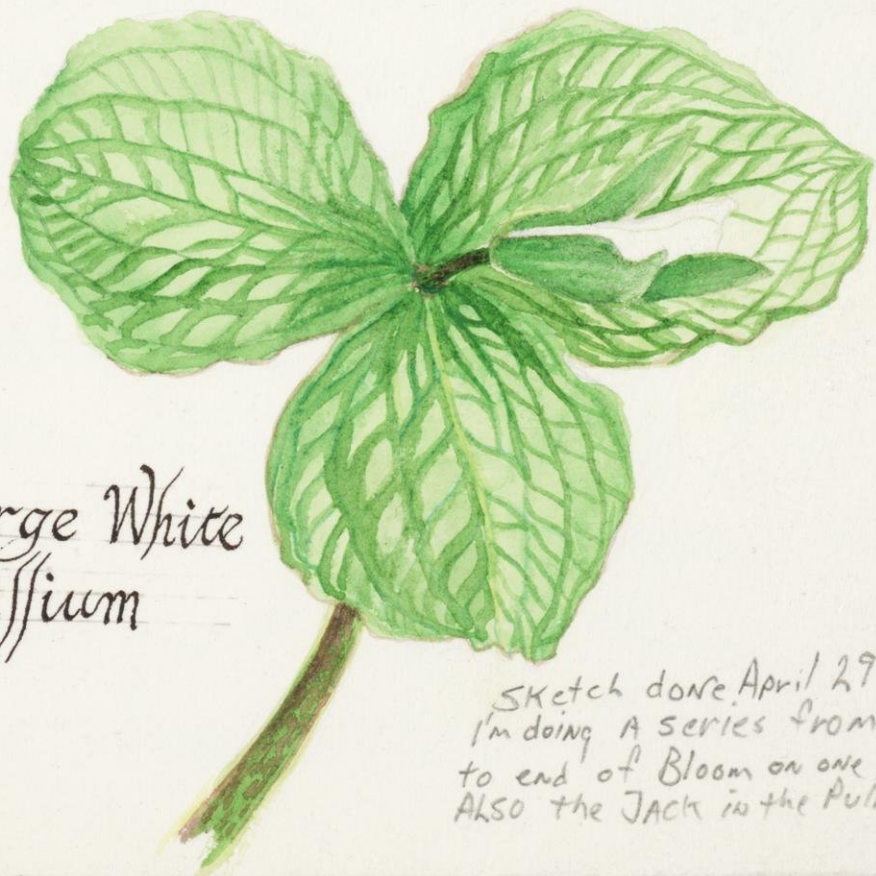 rge White
llium
Sketch done April 29
I'm doing A series from
to end of Bloom on one
ALSO the JACK in the Pul